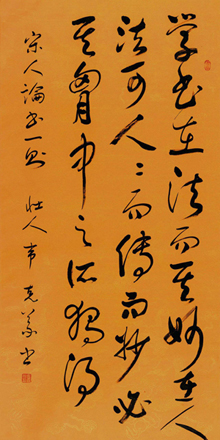 学书在法而其妙在人
法可人々而傳而妙必
其胸中之所独得
宋人論书一则 壮人韦克義书